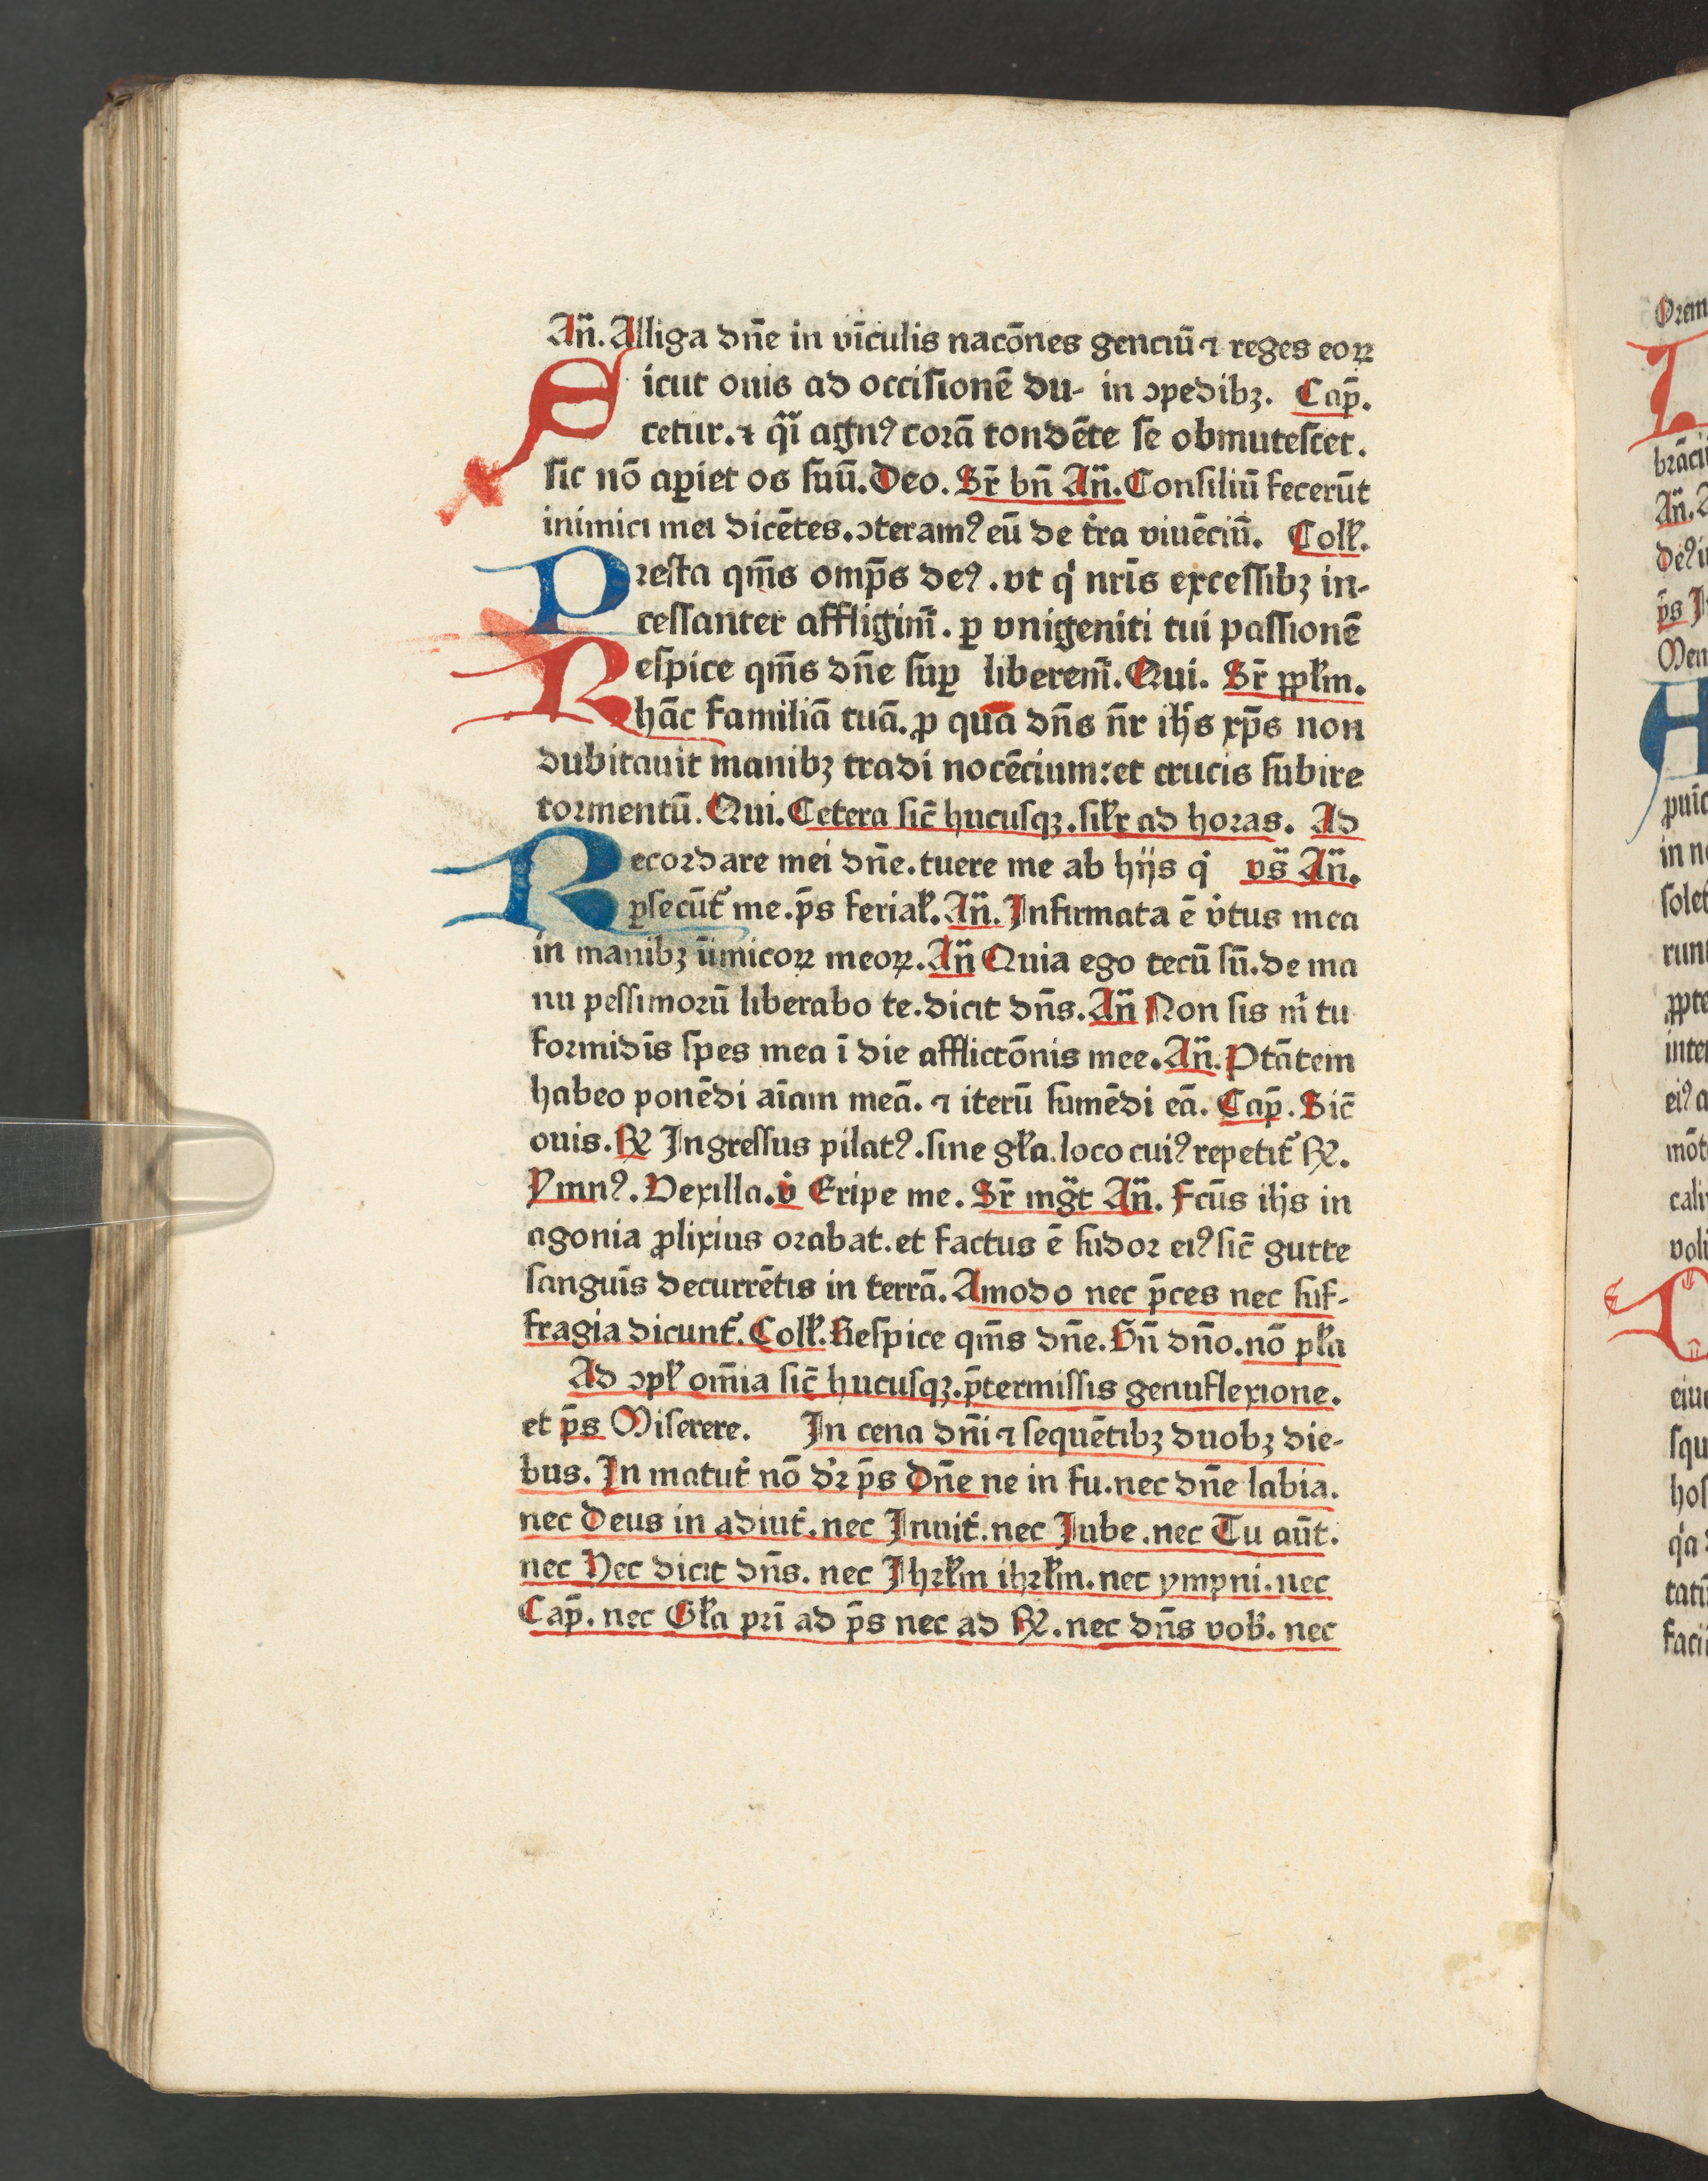 An̄. Alliga dn̄e in vīculis nacōnes genciū ⁊ reges eoꝝ
Sicut ouis ad occisionē du- in ꝯpedibꝫ. Cap̄.
cetur. ⁊ q̄ı agnꝰ corā tondēte se obmutescet.
sic nō aꝑiet os suū. Deo. Sr̄ bn̄ An̄. Consiliū fecerūt
inimici mei dicētes. ꝯteramꝰ eū de t̄ra viuēciū. Coll̄.
Presta qm̄s omp̄s deꝰ. vt q̇ nrīs excessibꝫ in-
cessanter affligim̄. ꝑ vnigeniti tui passionē
Respice qm̄s dn̄e suꝑ liberem̄. Qui. Sr̄ ꝓpl̄m.
hāc familiā tuā. ꝓ qua dn̄s n̄r ih̄s xp̄s non
dubitauit manibꝫ tradi nocēcium: et crucis subire
tormentū. Qui. Cetera sic̄ hucusqꝫ. sil̄r ad horas. Ad
Recordare mei dn̄e. tuere me ab hijs q̇ vs̄ An̄.
ꝑsecūt̄ me. p̄s ferial̄. An̄. Infirmata ē v̇tus mea
in manibꝫ īimicoꝝ meoꝝ. An̄ Quia ego tecū sū. de ma
nu pessimorū liberabo te. dicit dn̄s. An̄ Non sis m̄ tu
formidīs spes mea ī die afflictōnis mee. An̄. Ptātem
habeo ponēdi aīam meā. ⁊ iterū sumēdi eā. Cap̄. Sic̄
ouis. ℟ Ingressus pilatꝰ. sine gl̄a. loco cuiꝰ repetit̄ ℟.
Ymnꝰ. Vexilla. v̇ Eripe me. Sr̄ mḡt An̄. Fcūs ih̄s in
agonia ꝓlixius orabat. et factus ē sudor eiꝰ sic̄ gutte
sanguīs decurrētis in terrā. Amodo nec p̄ces nec suf-
fragia dicunt̄. Coll̄. Respice qm̄s dn̄e. Bn̄ dn̄o. nō pl̄a
Ad ꝯpl̄ om̄ia sic̄ hucusqꝫ. p̄termissis genuflexione.
et p̄s Miserere. In cena dn̄i ⁊ sequētibꝫ duobꝫ die-
bus. In matut̄ nō dr̄ p̄s Dn̄e ne in fu. nec dn̄e labia.
nec Deus in adiut̄. nec Inuit̄. nec Jube. nec Tu aūt.
nec Hec dicit dn̄s. nec Jhrl̄m ihrl̄m. nec ympni. nec
Cap̄. nec Gl̄a prī ad p̄s nec ad ℟. nec dn̄s vob̄. nec